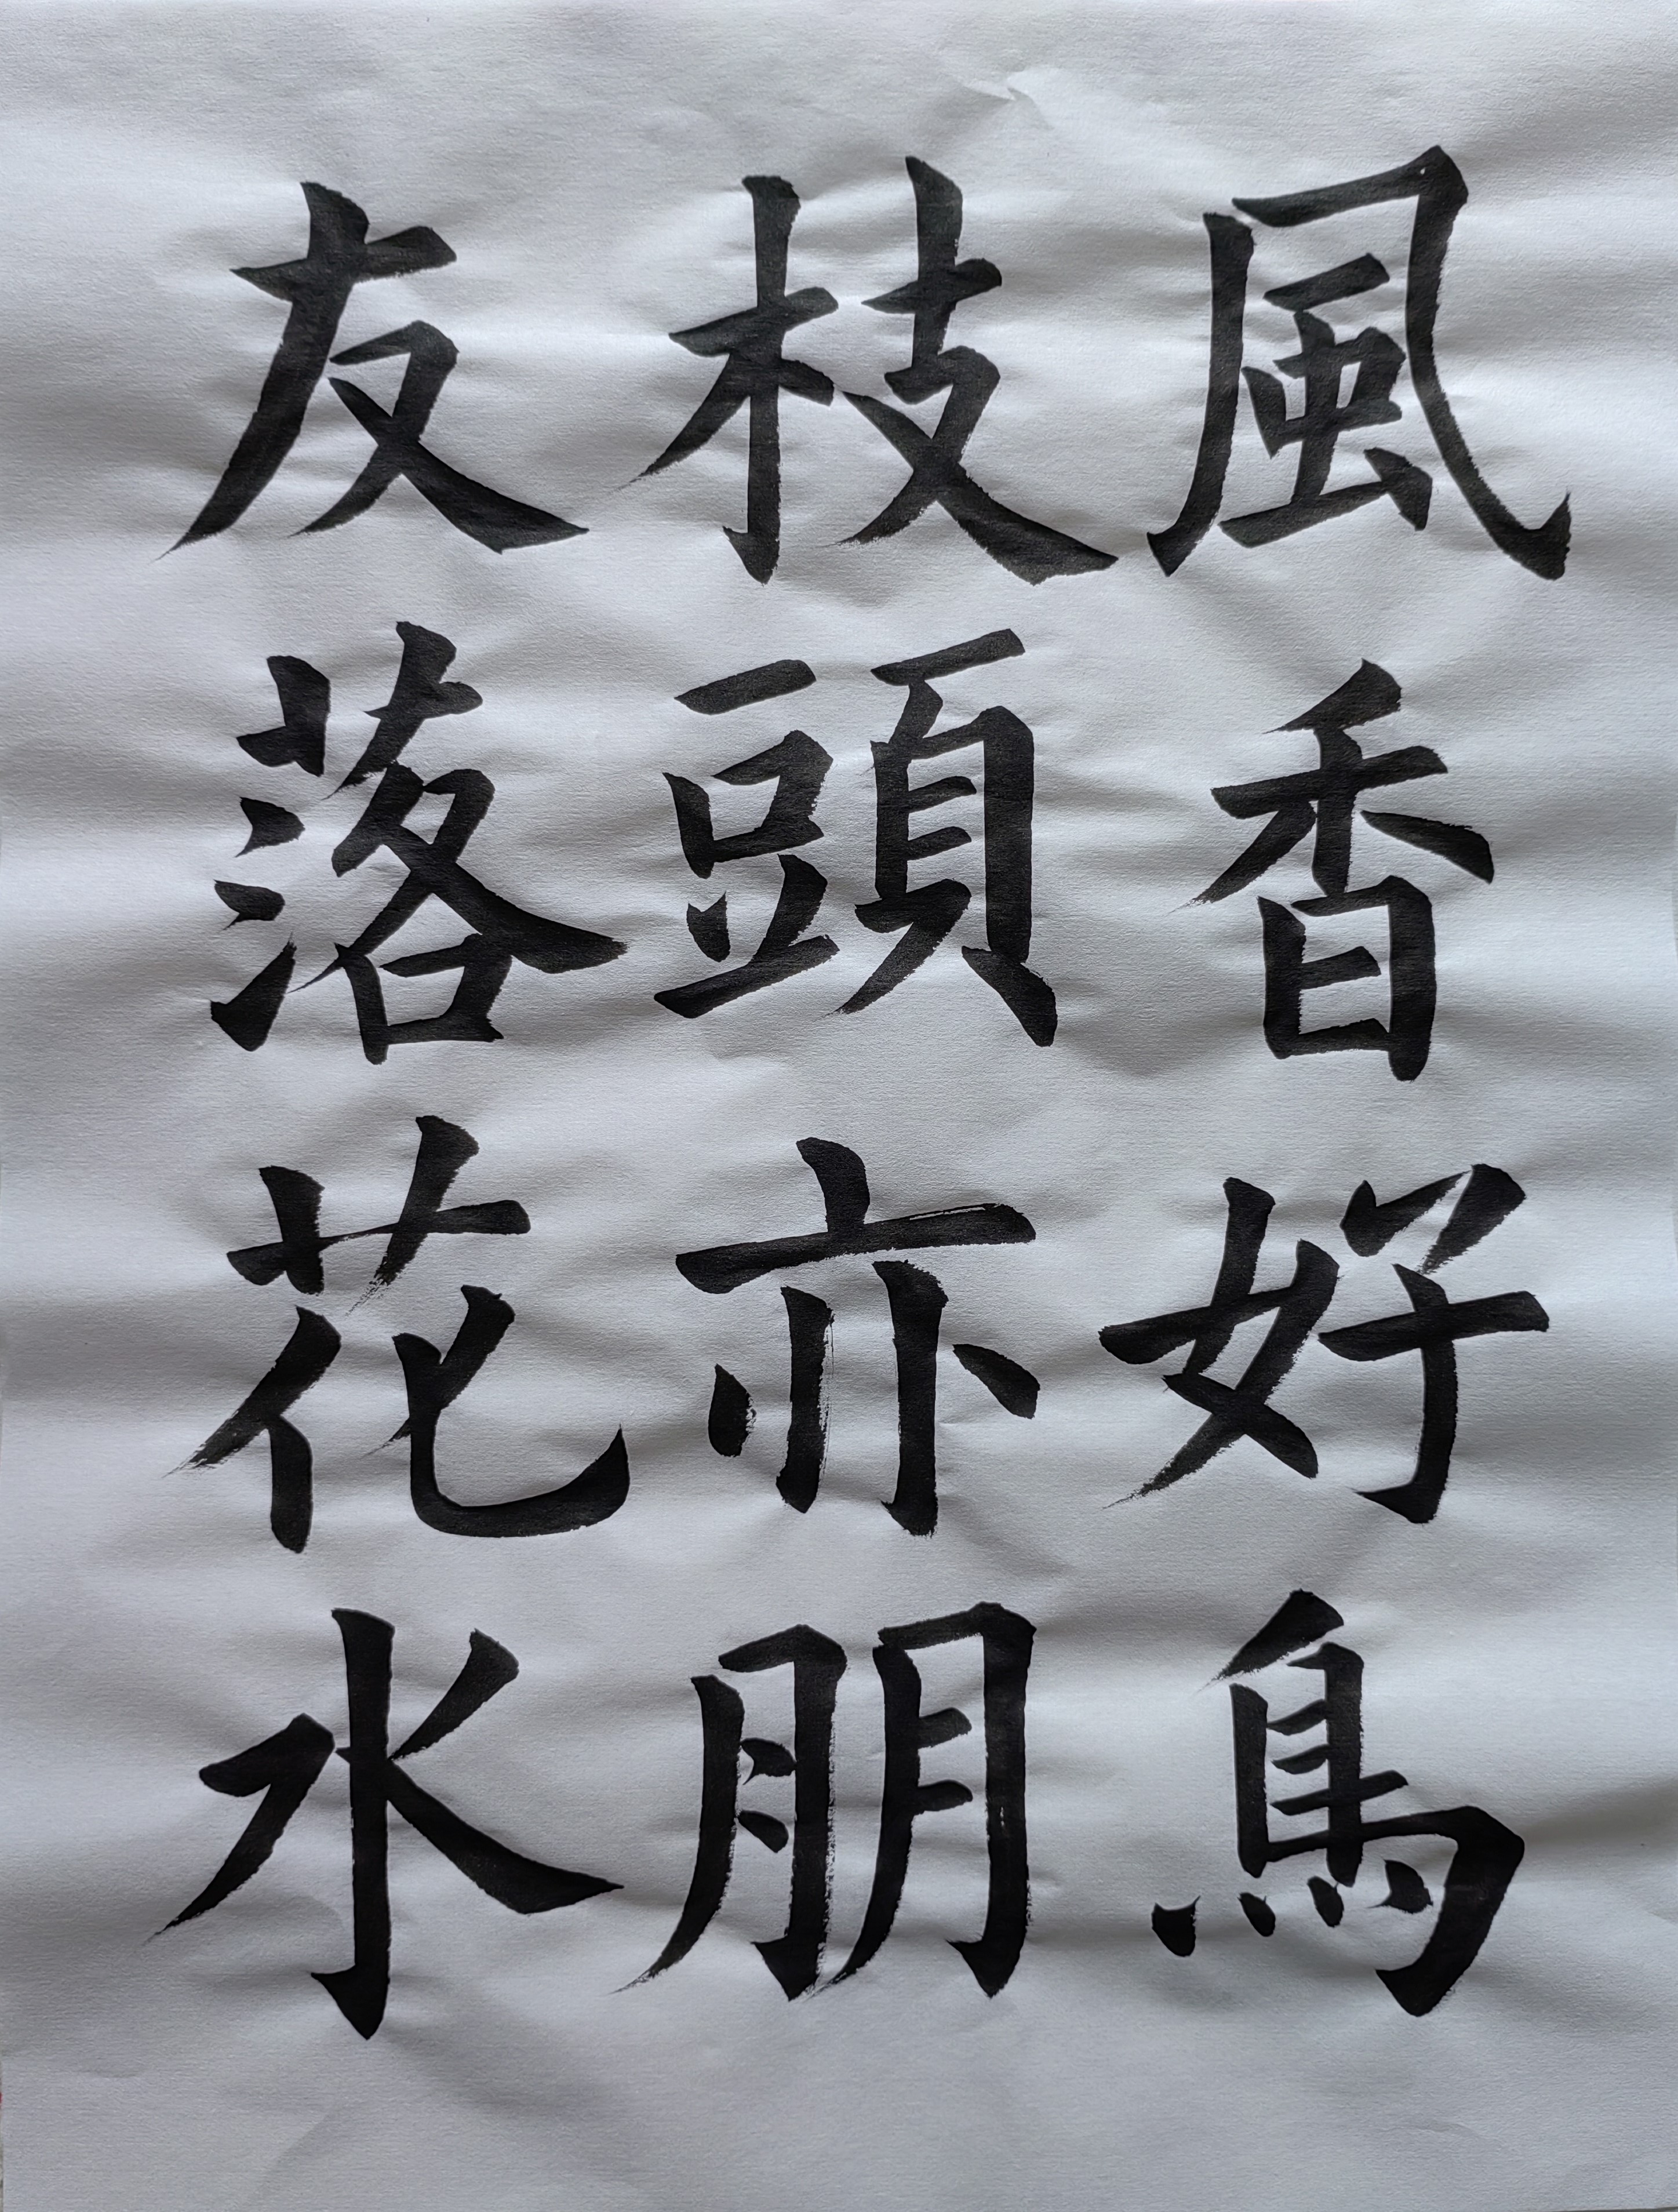 風香好鳥
枝頭亦朋
友落花水